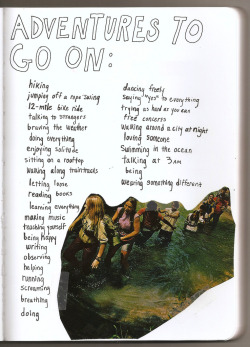 ADVENTURES TO
GO ON:
hiking
jumping off a rope swing
12-mile bike ride
talking to strangers
braving the weather
doing everything
enjoying solitude
sitting on a rooftop
walking along traintracks
letting loose
reading books
learning everything
making music
teaching yourself
being happy
writing
observing
helping
running
screaming
breathing
doing
dancing freely
saying "yes" to everything
trying as hard as you can
free concerts
walking around a city at night
loving someone
swimming in the ocean
talking at 3 am
being
wearing something different